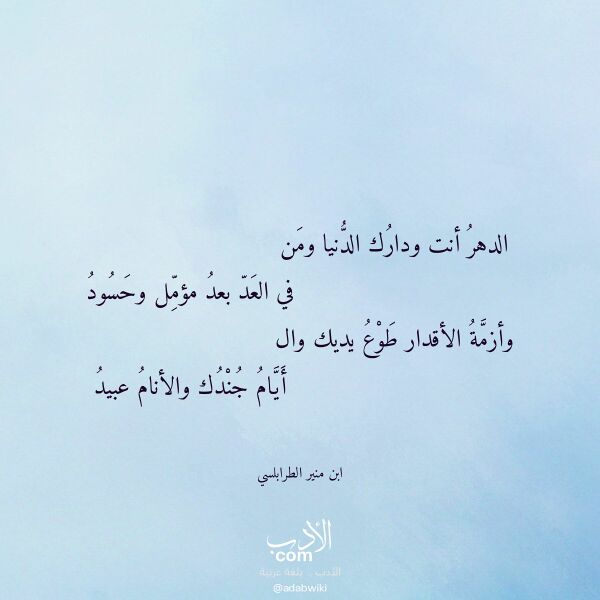 الدهرُ أنت ودارُك الدُّنيا ومَن
في العَدّ بعدُ مؤمِّل وحَسُودُ
وأزمَّةُ الأقدار طَوْعُ يديك وال
أَيَّامُ جُنْدُك والأنامُ عبيدُ
ابن منير الطرابلسي
الأدب
com
الأدب .. بلغة عربية
@adabwiki